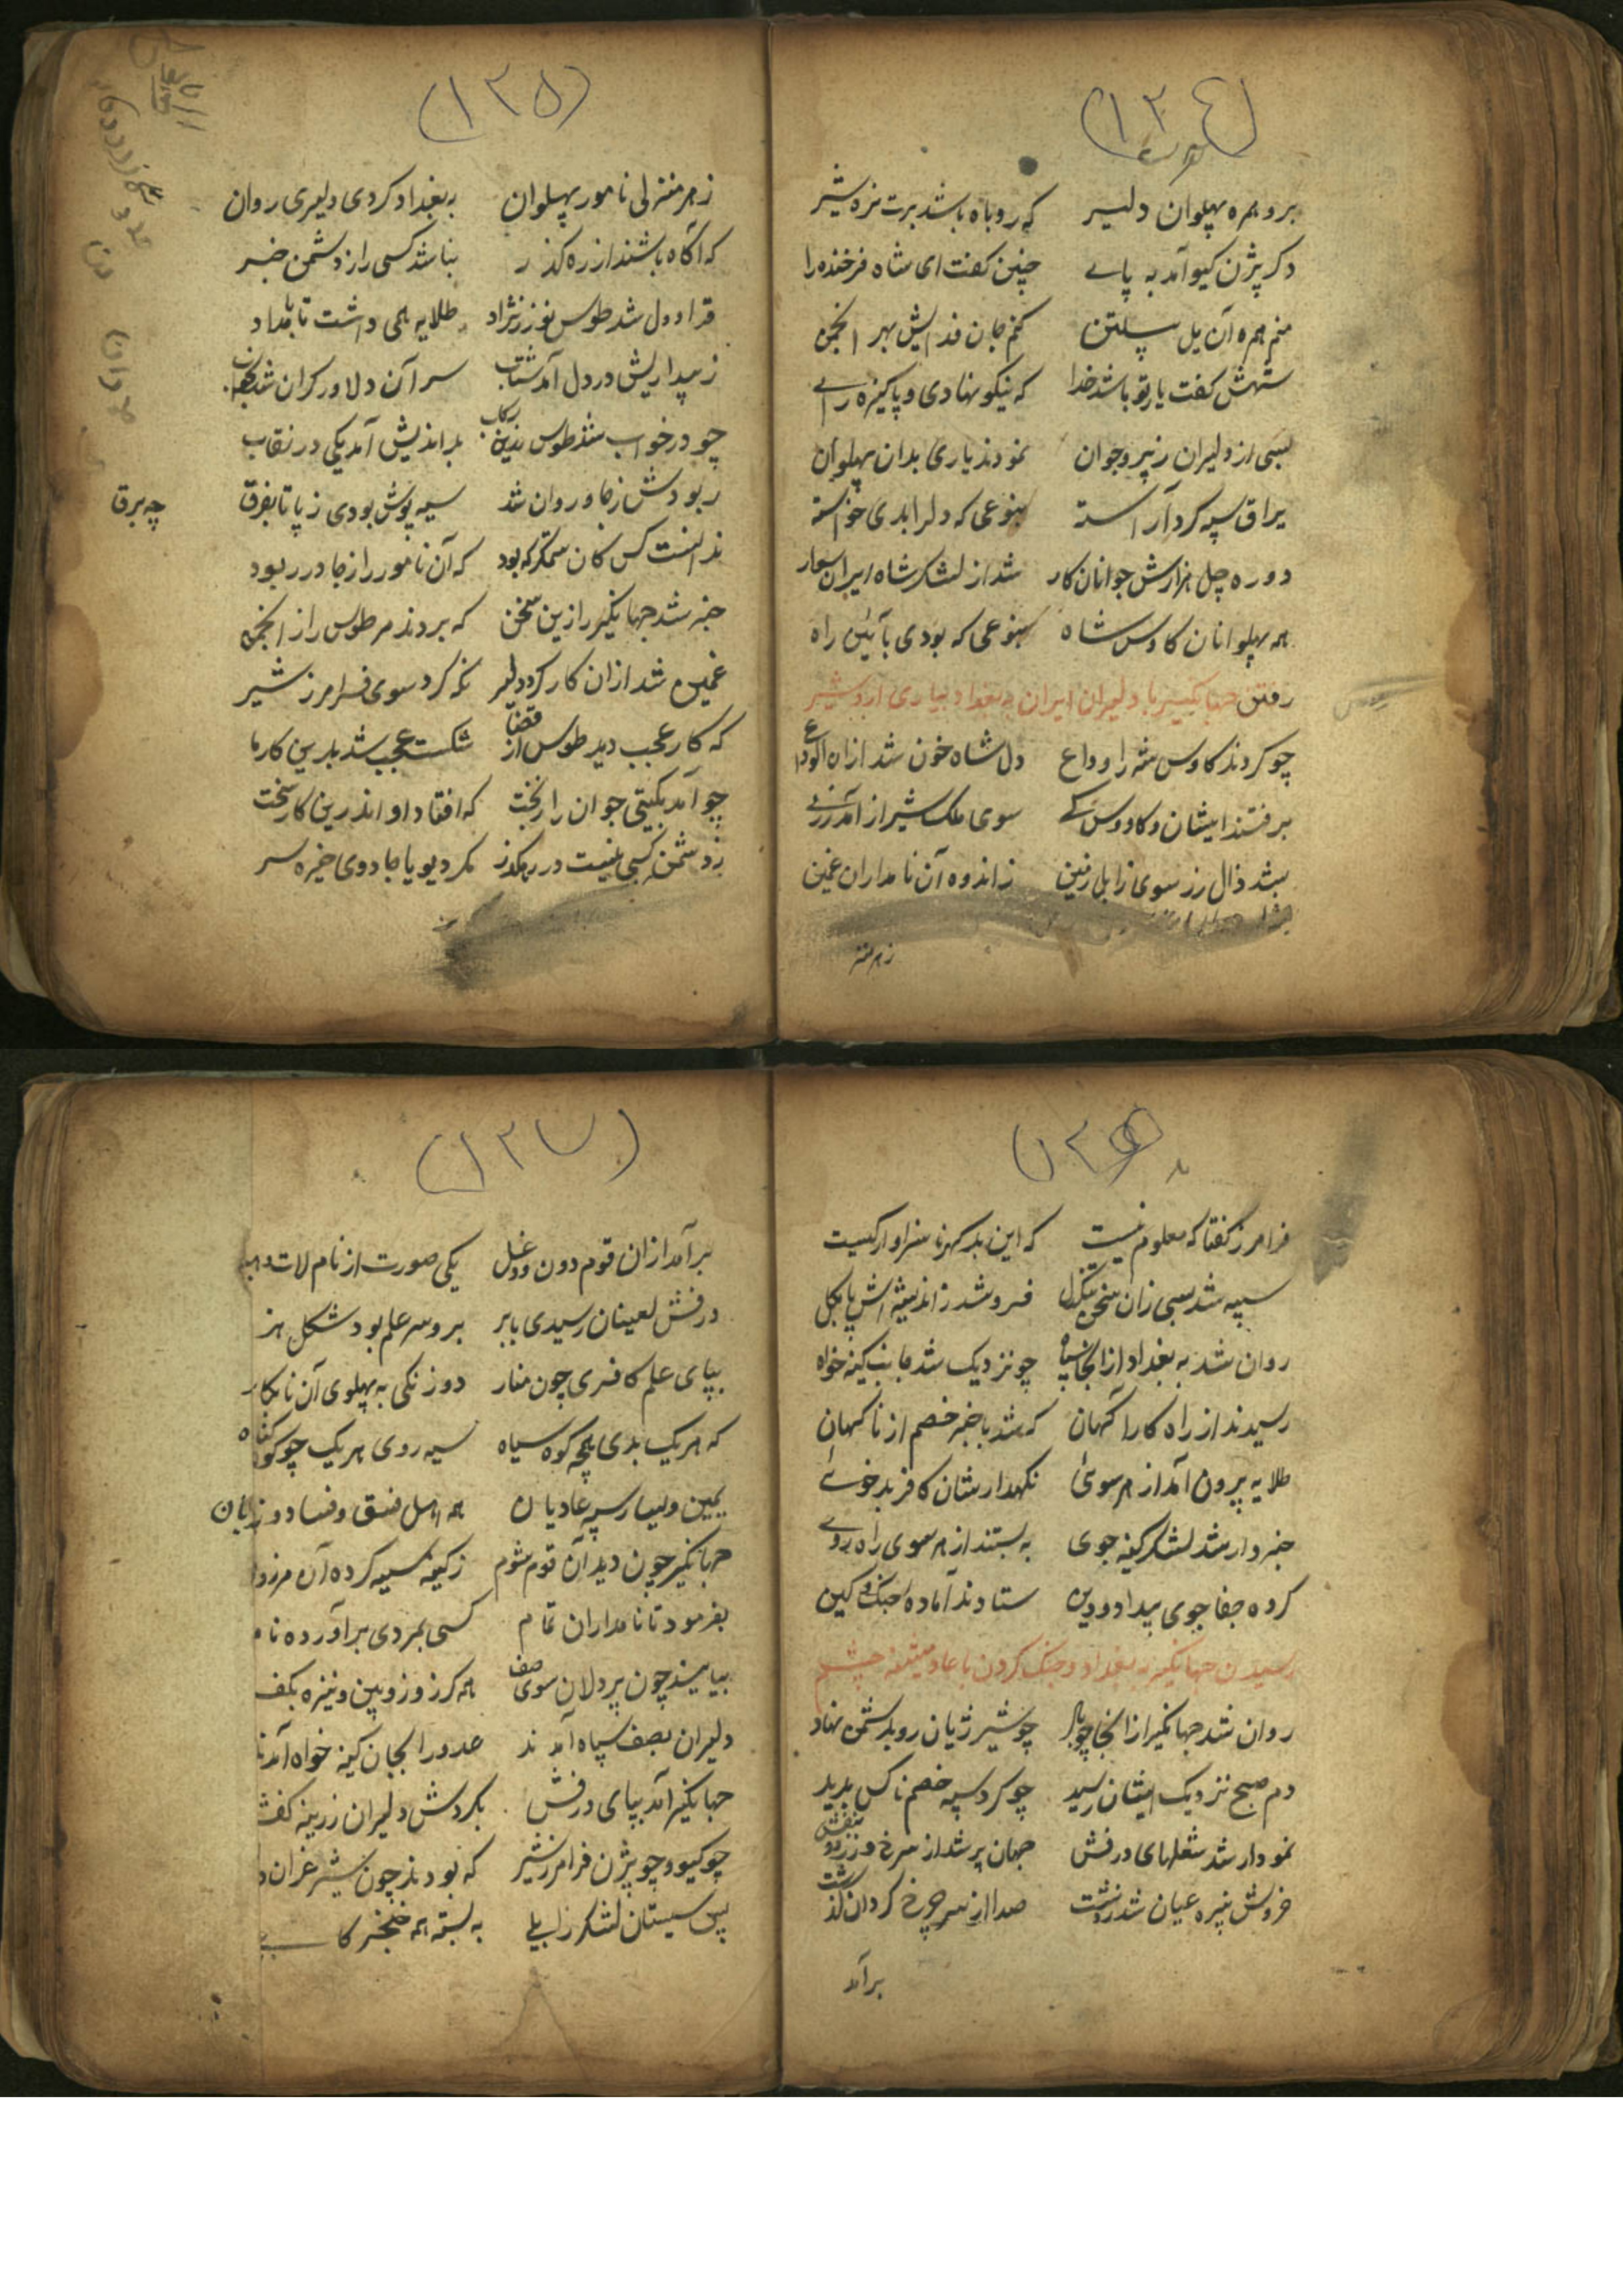 (۱۳٤)
برو همره پهلوان دلیر که روباه باشد برت نره شیر
دکر بیژن کیو آمد به پای چنین کفت ای شاه فرخنده رای
منم همره آن یل پیلتن کنم جان فدایش بهر انجمن
شهش کفت یار تو باشد خدا که نیکو نهادی و پاکیزه رای
بسی از دلیران ز پیر و جوان نمودند یاری بدان پهلوان
یراق سپه کرد آراسته بنوعی که دلرا بدی خواسته
دوره چل هزارش جوانان کار شد از لشکر شاه ایران سوار
همه پهلوانان کاوس شاه بنوعی که بودی بآئین راه
رفتن جهانگیر با دلیران ایران به بغداد بیاری اردشیر
چو کردند کاوس شه را وداع دل شاه خون شد ازان
برفتند ایشان و کاووس کی سوی ملک شیراز آمد ز ری
بشد زال زر سوی زابل زمین ز اندوه آن نامداران غمین
زهر منز
(۱۳۵)
زهر منزلی نامور پهلوان به بغداد کردی دلیری روان
که آکاه باشند از ره کذر نباشد کسی را ز دشمن خبر
قراول شد طوس نوذر نژاد طلایه همی داشت تا بامداد
ز بیداریش در دل آمد شتاب سر آن دلاور کران شد بخواب
چو در خواب شد طوس زرین رکاب بداندیش آمد یکی در نقاب
ربودش ز جا و روان شد سیه پوش بودی ز پا تا بفرق
چه برق
ندانست کس کان ستمکر که بود که آن نامور را ز جا در ربود
خبر شد جهانگیر را زین سخن که بردند مر طوس را ز انجمن
غمین شد ازان کار کرد دلیر نکه کرد سوی فرامرز شیر
که کار عجب دید طوس از قضا شکست عجب شد بدین کار ما
چو آمد بکیتی جوان را ز بخت که افتاد او اندرین کار سخت
ز دشمن کسی نیست در رهکذر مکر دیو یا جادوی خیره سر
(۱۳۶)
فرامرز کفتا که معلوم نیست که این بد کهر ناسزاوار کیست
سپه شد بسی زان سخن تنکدل فرو شد ز اندیشه اش پا بکل
روان شد به بغداد از انجا سپاه چو نزدیک شد جانب کینه خواه
رسیدند از راه کاراکهان که شد با خبر خصم از ناکهان
طلایه برون آمد از هر سوئی نکهدارشان کافر بد خوئی
خبردار شد لشکر کینه جوی به بستند از هر سوی راه روی
کروه جفا جوی بیداد و دین ستادند آماده جنک و کین
رسیدن جهانگیر به بغداد و جنک کردن با عاد میشنه چشم
روان شد جهانگیر از انجا چو باد چو شیر ژیان رو بدشمن نهاد
دم صبح نزدیک ایشان رسید چو کرد سپه خصم ناکس بدید
نمودار شد شعلهای درفش جهان پر شد از سرخ و زرد و بنفش
خروش نبیره عیان شد ز دشت صدا از سر چرخ کردان کذشت
برآمد
(۱۳۷)
برآمد ازان قوم دون و دغل یکی صورت از نام لات
درفش لعینان رسیدی بابر برو سر علم بود شکل هزبر
بپای علم کافری چون منار دو زنکی به پهلوی آن نابکار
که هر یک بدی همچه کوه سیاه سیه روی هر یک چو کوه کناه
یمین و یسار سپه عادیان همه اهل فسق و فساد و زیان
جهانگیر چون دید آن قوم شوم ز کینه سیه کرده آن مرز و
بفرمود تا نامداران تمام کسی بمردی برآورده نام
بیایند چون پردلان سوی صف همه کرز و زوبین و نیزه بکف
دلیران بصف سپاه آمدند عدو را بجان کینه خواه آمدند
جهانگیر آمد بپای درفش بکردش دلیران زرینه کفش
چو کیو و چو بیژن فرامرز شیر که بودند چون شیر غران
پس سیستان لشکر زابلی به بسته همه خنجر کابلی